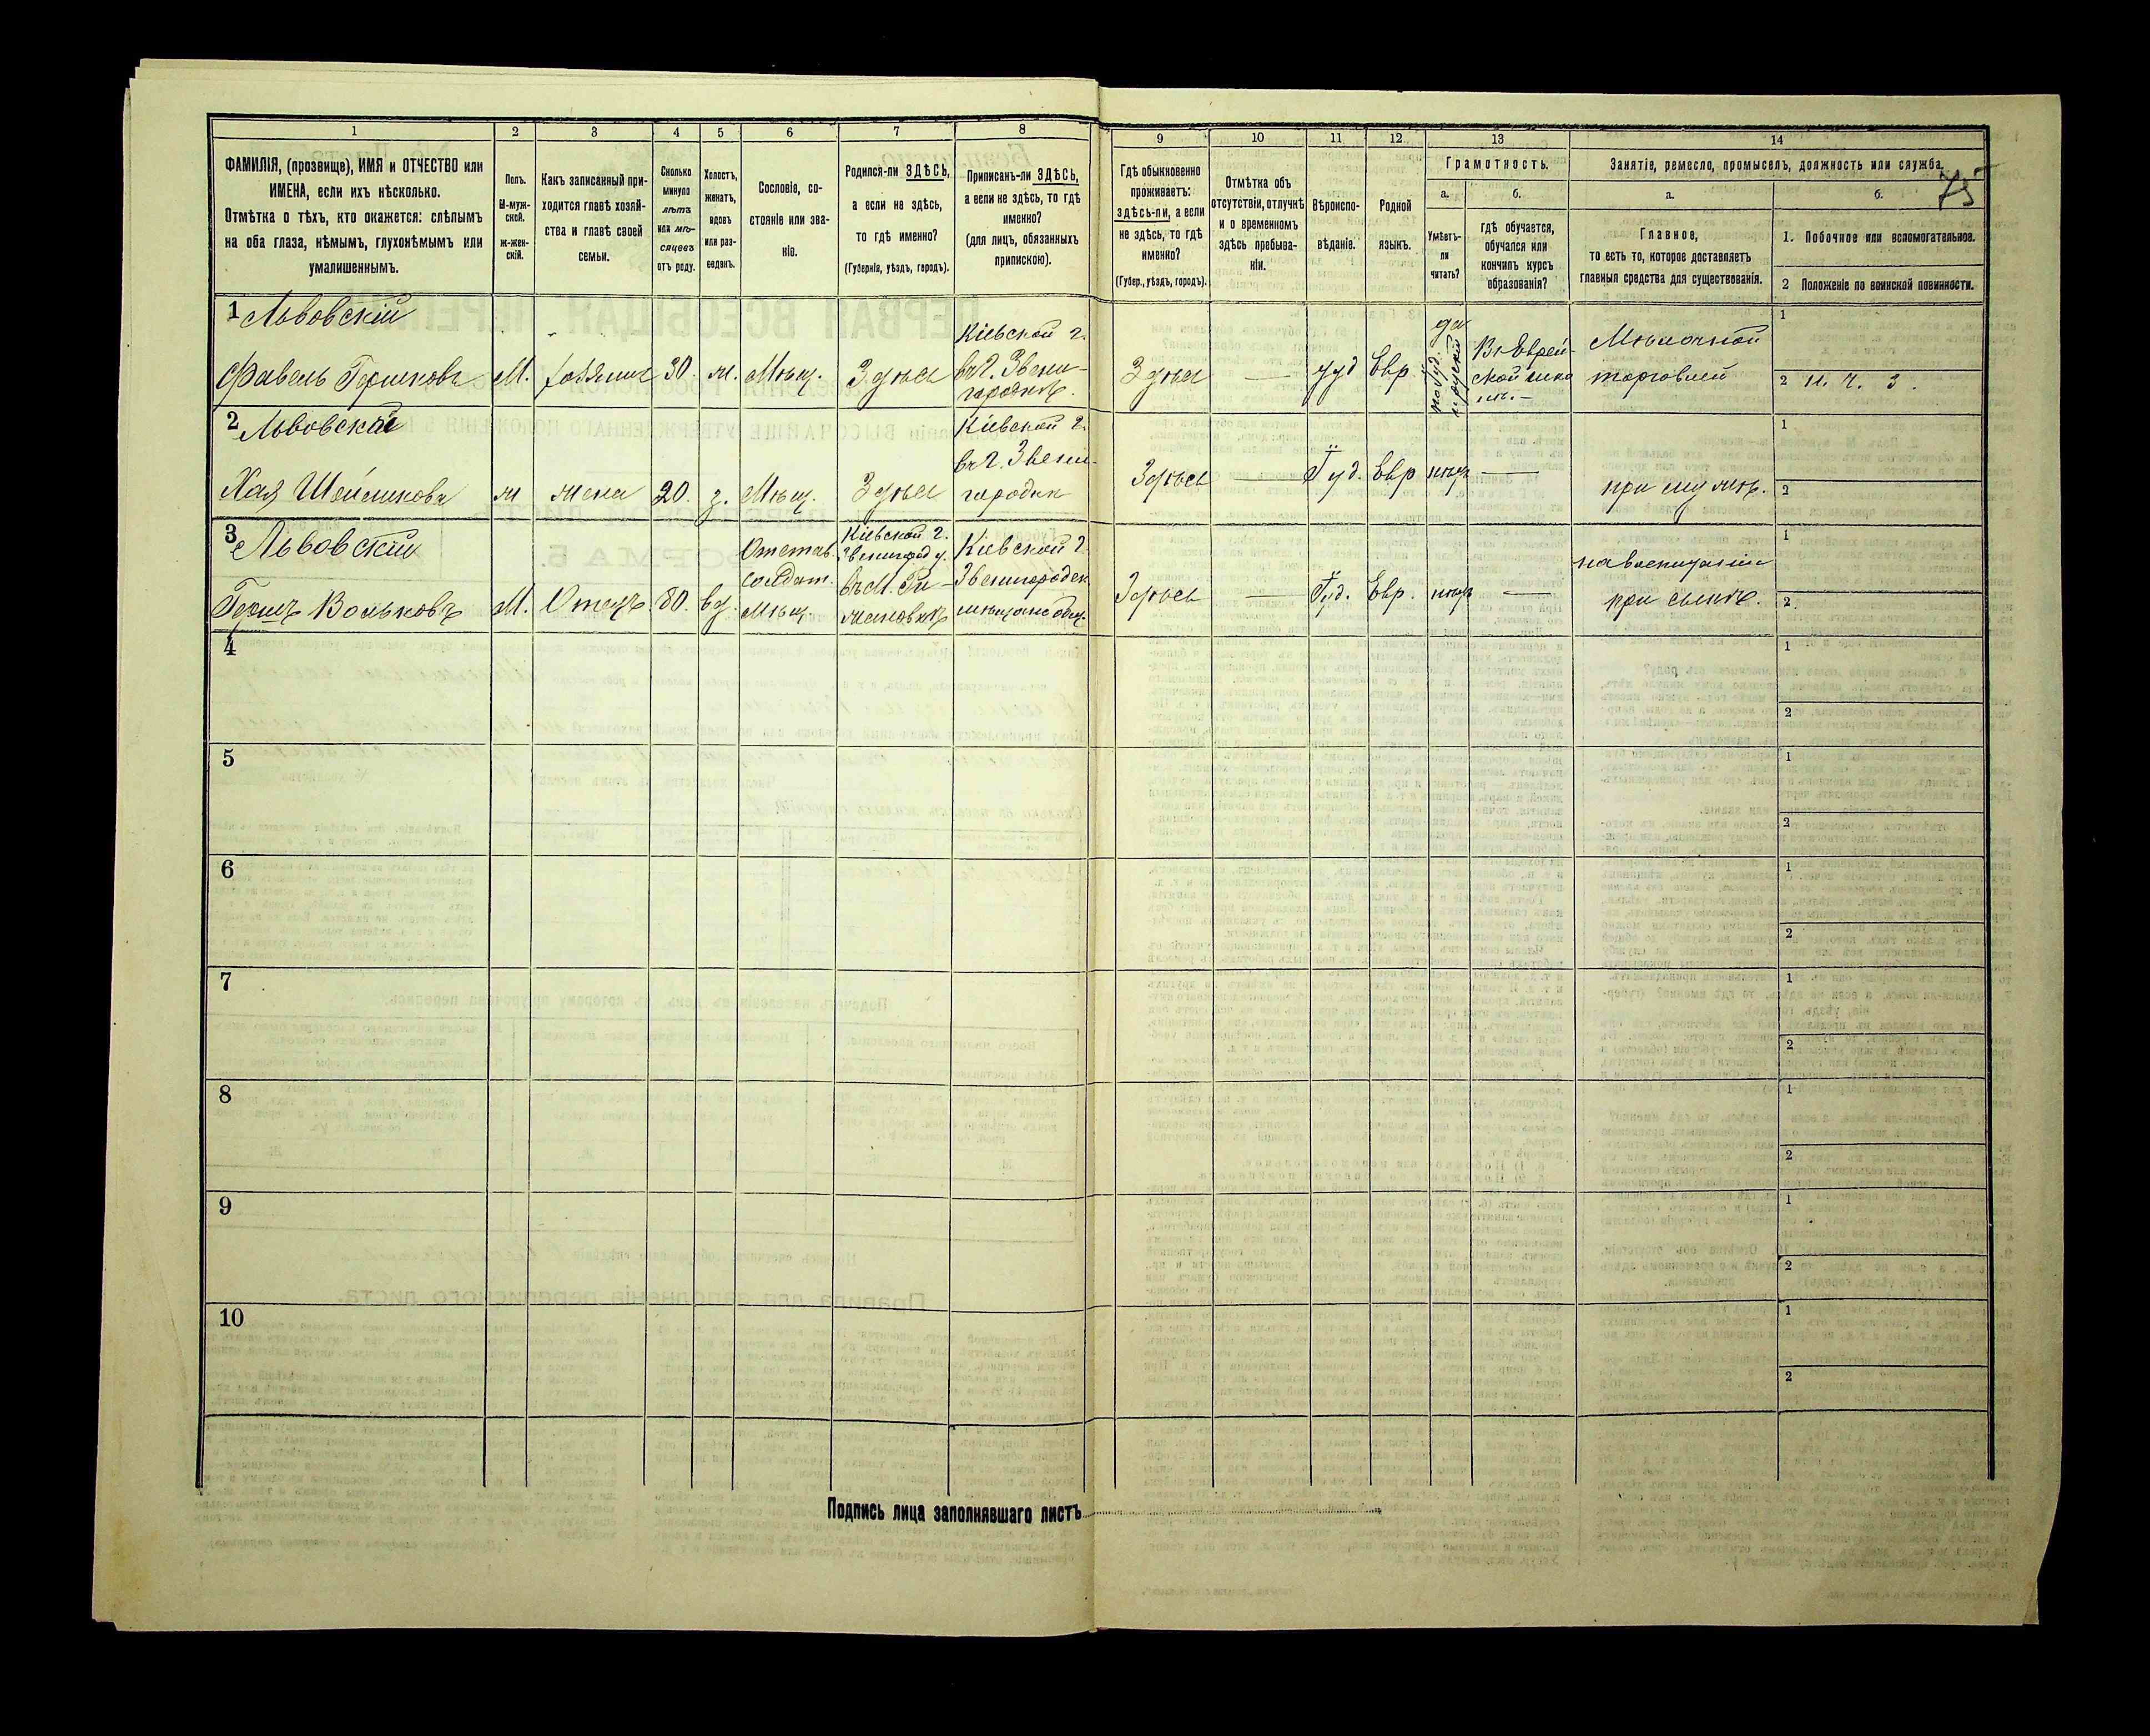 1
2
3
4
5
6
7
8
ФАМИЛІЯ, (прозвище), ИМЯ и ОТЧЕСТВО или
ИМЕНА, если ихъ нѣсколько.
Отмѣтка о тѣхъ, кто окажется: слѣпымъ
на оба глаза, нѣмымъ, глухонѣмымъ или
умалишеннымъ.
Полъ.
М-муж-
ской.
ж-жен-
скій.
Какъ записанный при-
ходится главѣ хозяй-
ства и главѣ своей
семьи.
Сколько
минуло
лѣтъ
или мѣ-
сяцевъ
отъ роду.
Холостъ,
женатъ,
вдовъ
или раз-
веденъ.
Сословіе, со-
стояніе или зва-
ніе.
Родился-ли ЗДѢСЬ,
а если не здѣсь,
то гдѣ именно?
(Губернія, уѣздъ, городъ).
Приписанъ-ли ЗДѢСЬ,
а если не здѣсь, то гдѣ
именно?
(для лицъ, обязанныхъ
припискою).
1 Львовскій
Фавель Гершковъ
М.
хозяинъ
30
ж.
Мѣщ.
Здѣсь
Кіевской г.
въ г. Звени-
городкѣ.
2 Львовская
Хая Шеймикова
ж
жена
20.
з.
Мѣщ.
Здѣсь
Кіевской г.
въ г. Звени-
городкѣ
3 Львовскій
Гершъ Вольковъ
М.
Отецъ
80.
вд.
Отстав.
солдат.
Мѣщ.
Кіевской г.
Звенигород у.
въ М.
Кіевской г
Звенигородск.
мѣщанс общ.
4
5
6
7
8
9
10
Подпись лица заполнявшаго листъ
9
10
11
12
13
14
75
Гдѣ обыкновенно
проживаетъ:
здѣсь-ли, а если
не здѣсь, то гдѣ
именно?
(Губер., уѣздъ, городъ).
Отмѣтка объ
отсутствіи, отлучкѣ
и о временномъ
здѣсь пребыва-
ніи.
Вѣроиспо-
вѣданіе.
Родной
языкъ.
Грамотность.
а.
б.
Умѣетъ-
ли
читать?
гдѣ обучается,
обучался или
кончилъ курсъ
образованія?
Занятіе, ремесло, промыселъ, должность или служба.
а.
б.
Главное,
то есть то, которое доставляетъ
главныя средства для существованія.
1. Побочное или вспомогательное.
2 Положеніе по воинской повинности.
Здѣсь
—
Іуд
Евр
да
Въ Еврей-
ской шко
лѣ. —
Мѣлочной
торговлей
1
2 н. ч. з.
Здѣсь
—
Іуд.
Евр
нѣтъ
—
при мужѣ.
1
2
Здѣсь
—
Іуд.
Евр.
нѣтъ
—
на воспитаніи
при сынѣ.
1
2.
1
2
1
2
1
2
1
2
1
2
1
2
1
2